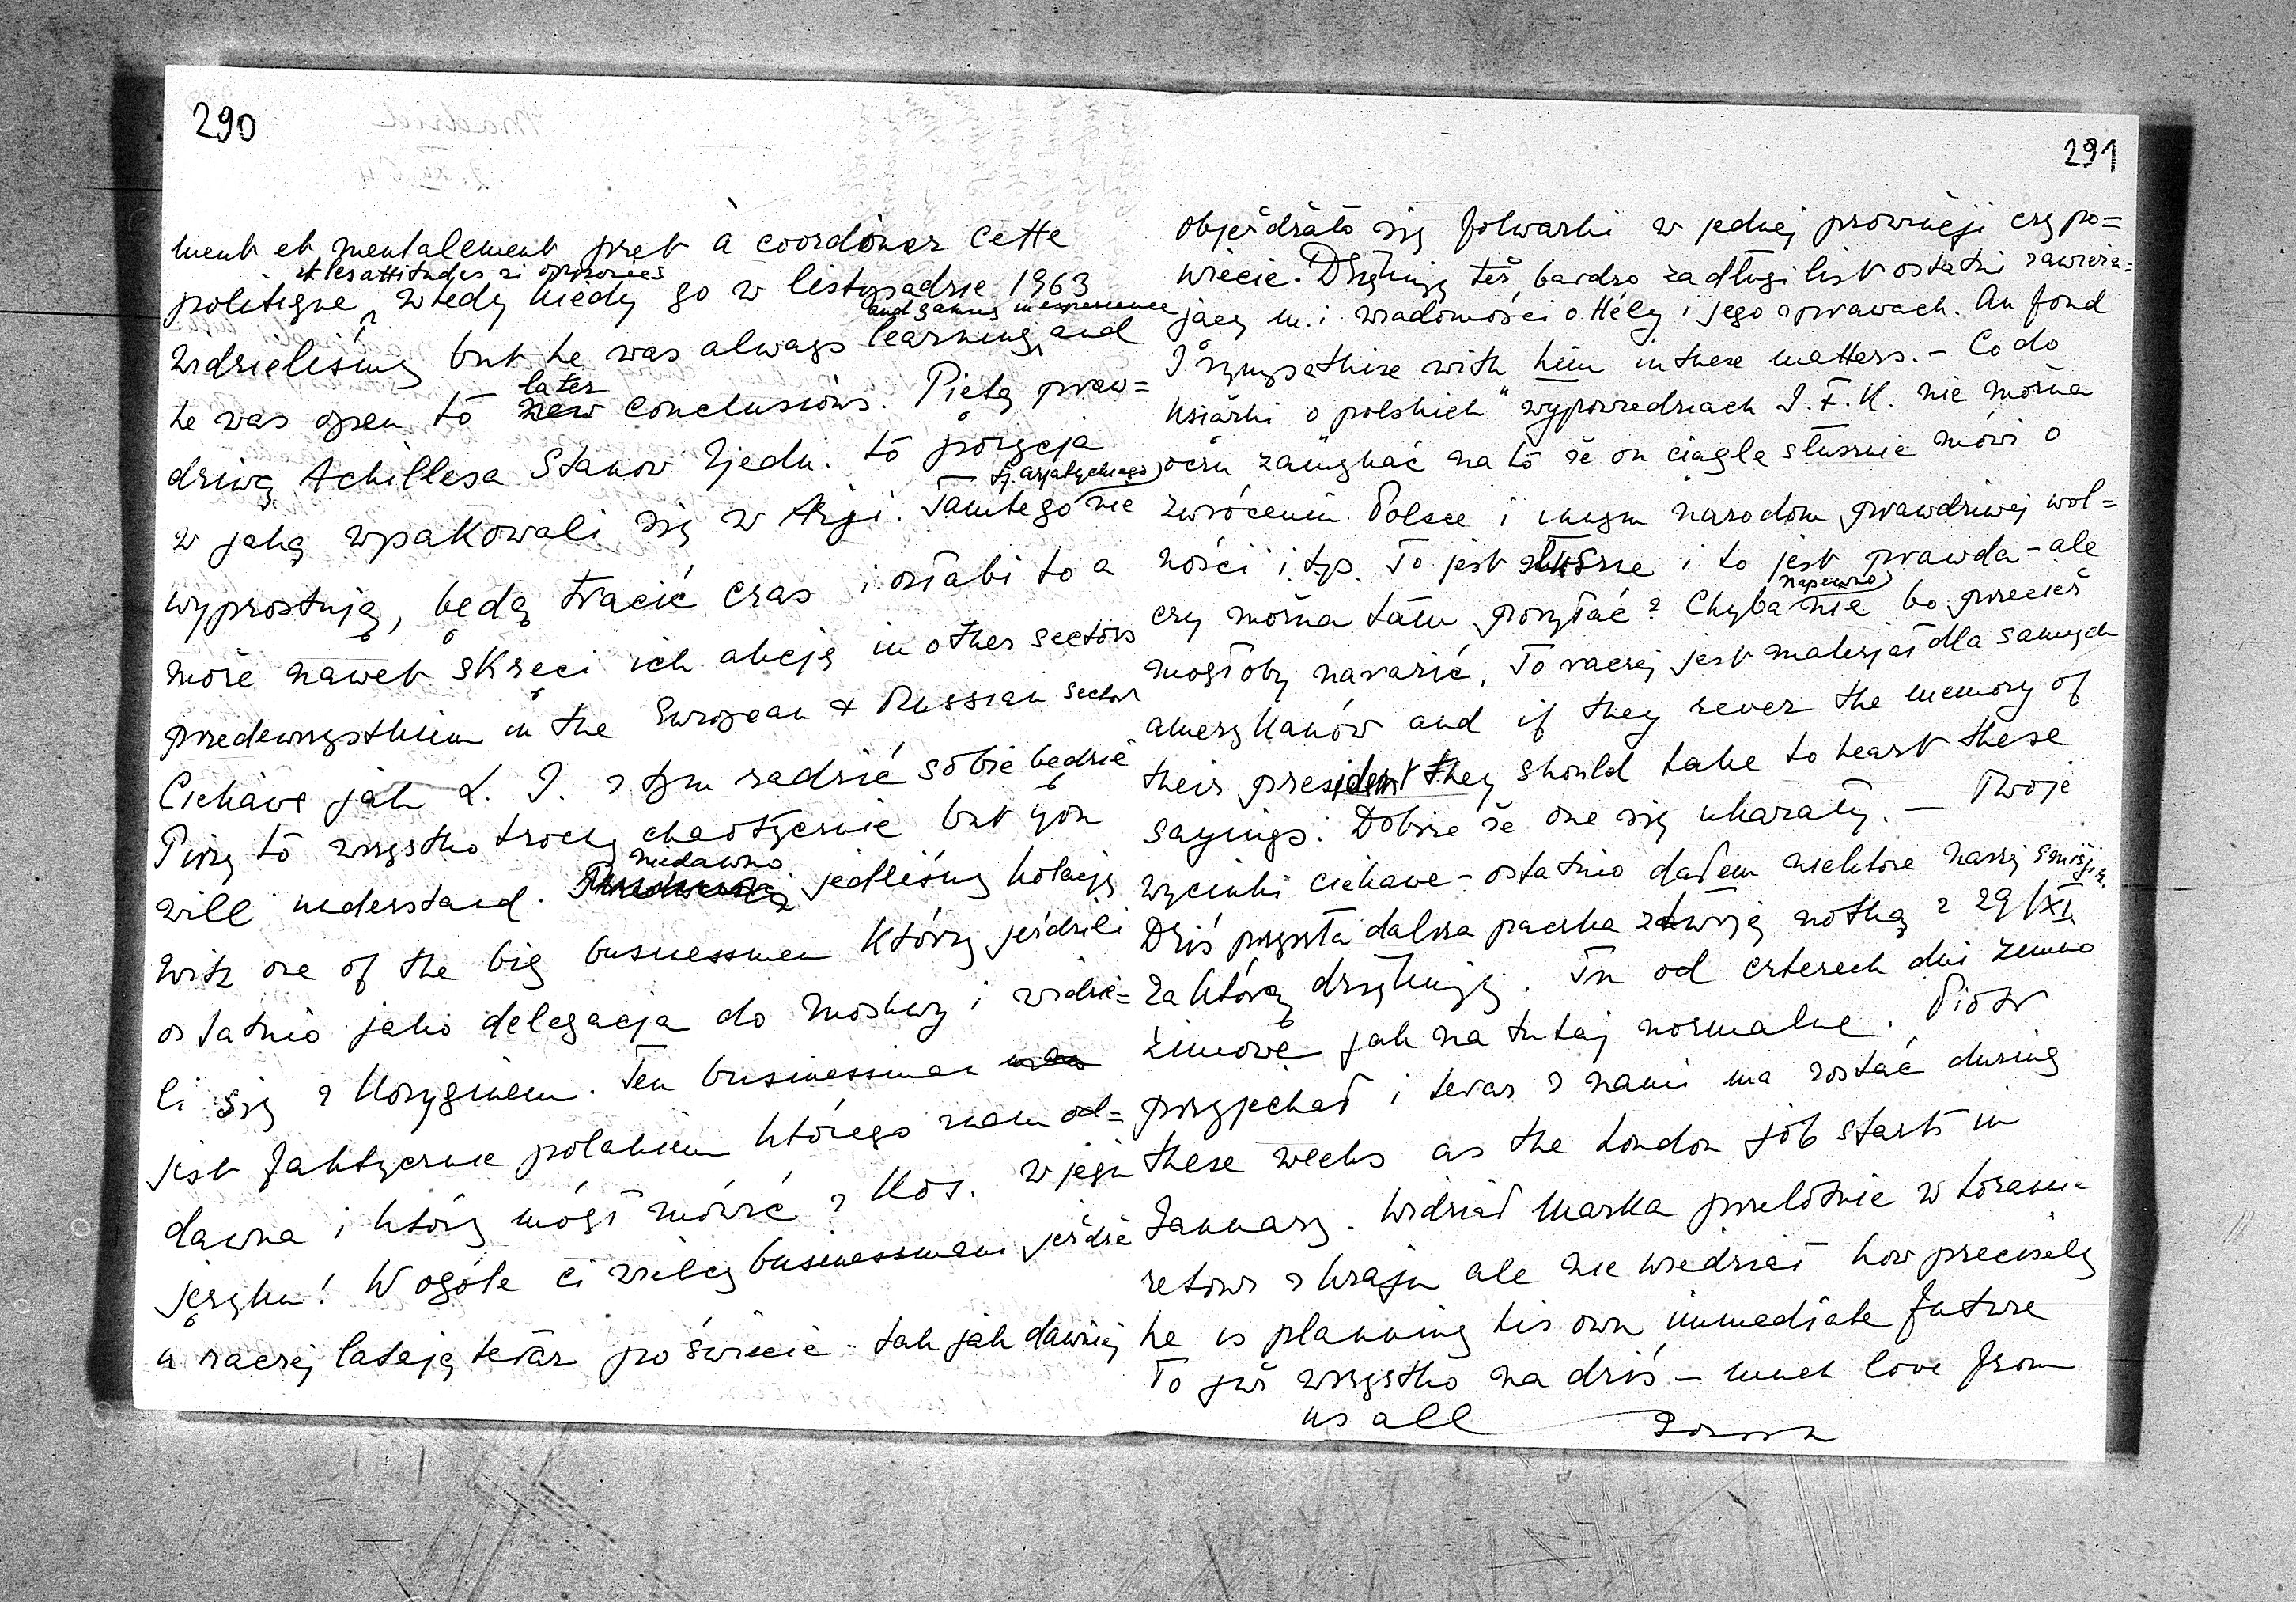 290
ment et mentalement pret à coordoner cette
et les attitudes si opposées
politique, wtedy kiedy go w listopadzie 1963
and gaining in experience
widzieliśmy but he was always learning, and
later
he was open to new conclusions. Piętą praw=
dziwą Achillesa Stanow Zjedn. to pozycja
tj. azjatyckiego
w jaką wpakowali się w Azji. Tamtego nie
wyprostują, będą tracić czas i osłabi to a
może nawet skręci ich akcję in other sectors
przedewszystkiem in the European & Russian sector
Ciekawe jak L. J. z tym radzić sobie będzie
Piszę to wszystko trochę chaotycznie but you
niedawno
will understand. jedliśmy kolację
with one of the big businessmen którzy jeździli
ostatnio jako delegacja do Moskwy i widzie=
li się z Kosyginem. Ten businessman
jest faktycznie polakiem którego znam od=
dawna i który mógł mówić z Kos. w jego
języku! W ogóle ci wielcy businessmani jeżdżą
a raczej latają teraz po świecie - tak jak dawniej
291
objeżdżało się folwarki w jednej prowincji czy po=
wiecie. Dziękuję też bardzo za długi list ostatni zawiera=
jący m. i wiadomości o Hély i jego sprawach. Au fond
I sympathise with him in these matters. - Co do
książki o „polskich" wypowiedziach J. F. K. nie można
oczu zamykać na to że on ciągle słusznie mówi o
zwróceniu Polsce i innym narodom prawdziwej wol=
ności i tp. To jest słuszne i to jest prawda - ale
napewno
czy można tam posyłać? Chyba nie bo przecież
mogłoby narazić. To raczej jest materjał dla samych
amerykanów and if they rever the memory of
their president they should take to heart these
sayings. Dobrze że one się ukazały. — Twoje
wycinki ciekawe - ostatnio dałem niektóre naszej
Dziś przyszła dalsza paczka z twoją notką z 29/XI
za którą dziękuję. Tu od czterech dni zimno
zimowe jak na tutaj normalne. Piotr
przyjechał i teraz z nami ma zostać during
these weeks as the London job starts in
January. Widział Marka przelotnie w Lozannie
retour z kraju ale nie wiedział how precisely
he is planning his own immediate future
To już wszystko na dziś — much love from
us all